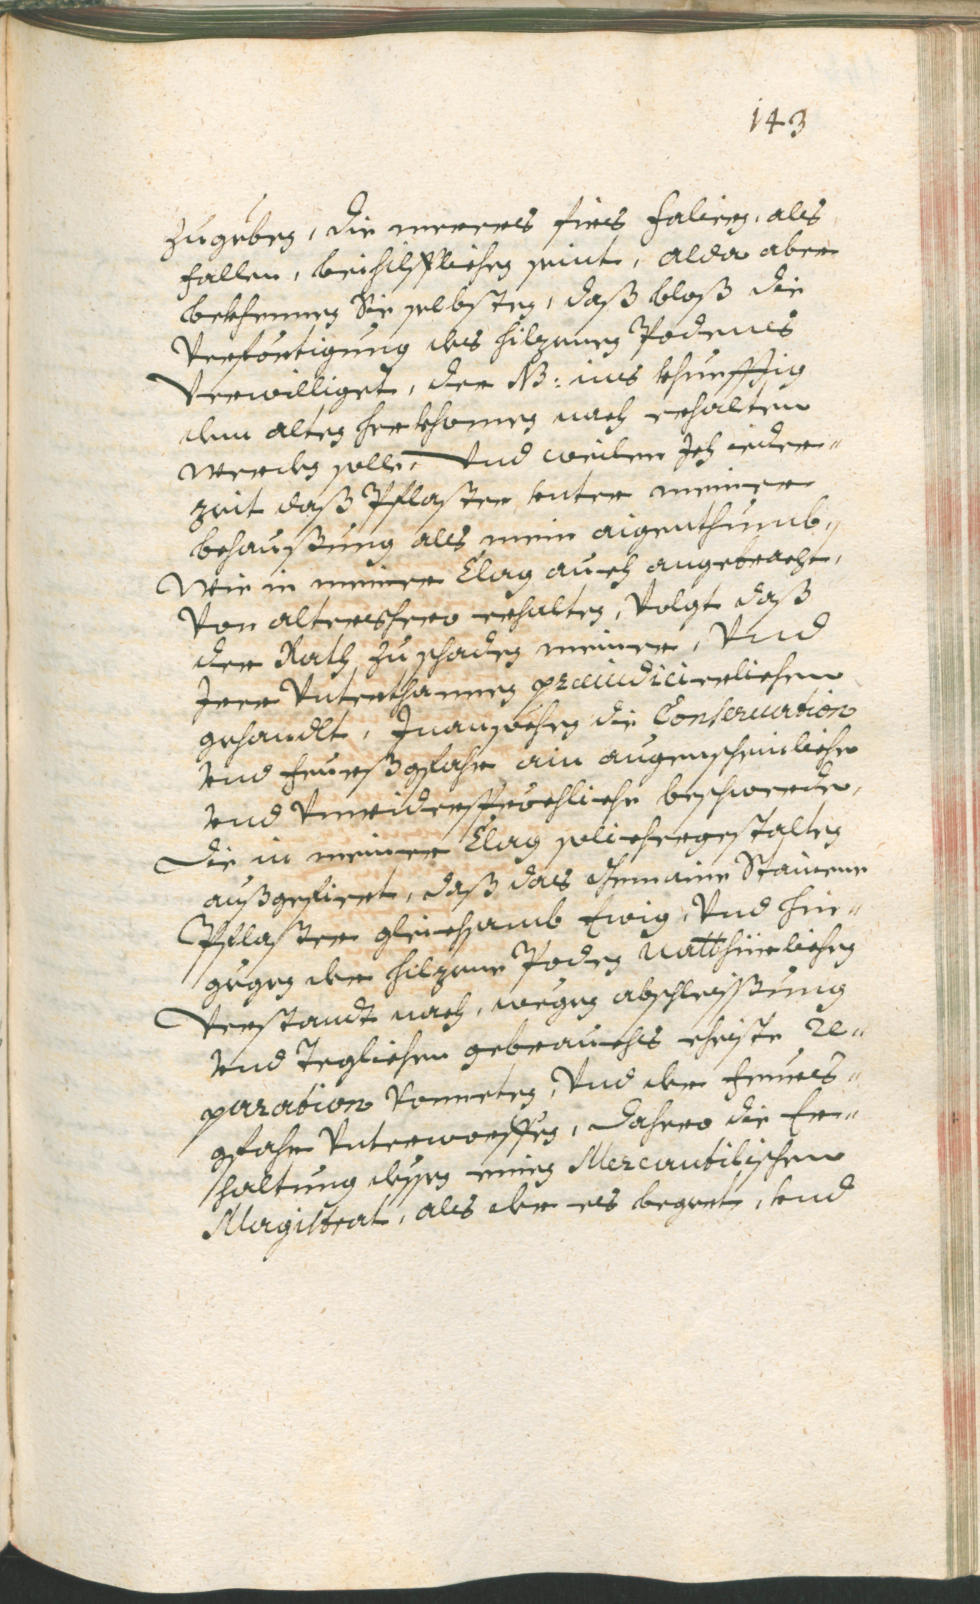 143
zugeben, die merers fürs Falien, als
fallen, beihilfflichen seint, alda aber
bekhennen Sie selbsten, daß bloß die
Verförtigung des hilzenen Podens
Verwilliget, der NB: ins khunfftig
dem alten herkhomen nach erhalten
werden solle, Und weilen Ich ieder-
zeit daß Pflaster unter meiner
behaußung als mein aigenthumb-
Wie in meiner Clag auch angebracht,
Von altershero erhalten, Volgt daß
der Rath zu schaden meiner, Und
Irer Unterthannen praeiudicierlichen
gehandlt, Inansehen die Conseruation
und feuersgfahr ain augenscheinliche
und Unwidersprechliche beschwerde,
Die in meiner Clag solichergestalten
außgefiert, daß das Gemaine Stainene
Pflaster gleichsamb Ewig, Und hin-
gegen der hilzene Poden natthürlichen
Verstandt nach, wegen abschleissung
und Teglichen gebrauchs ehiste Re-
paration Vonneten, Und der feuers-
gfahr Unterworffen, Dahero die Er-
haltung dessen einen Mercantilischen
Magistrat, als der es begert, und